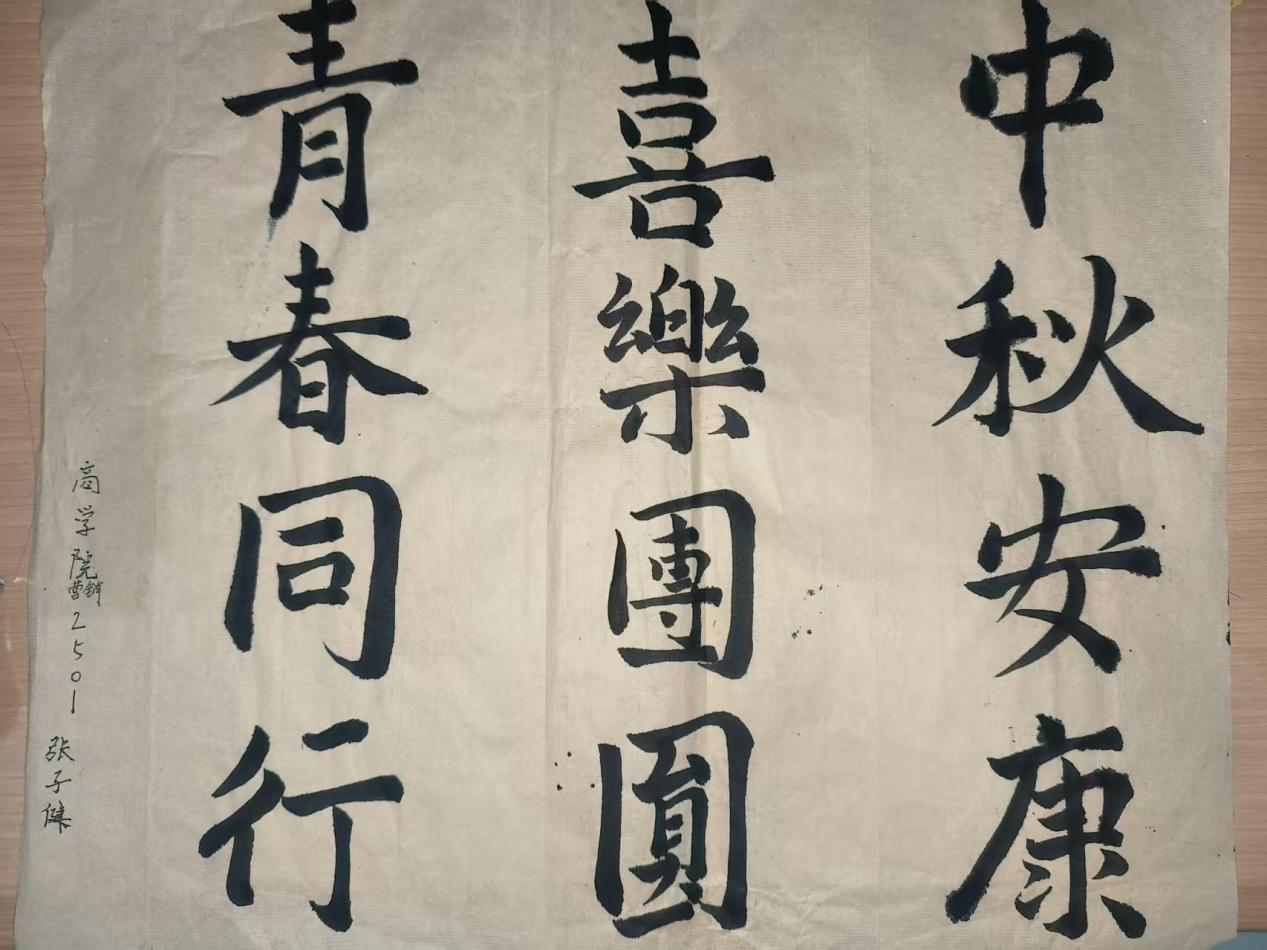 中秋安康
喜樂團圓
青春同行
商学院营销2501
张子健